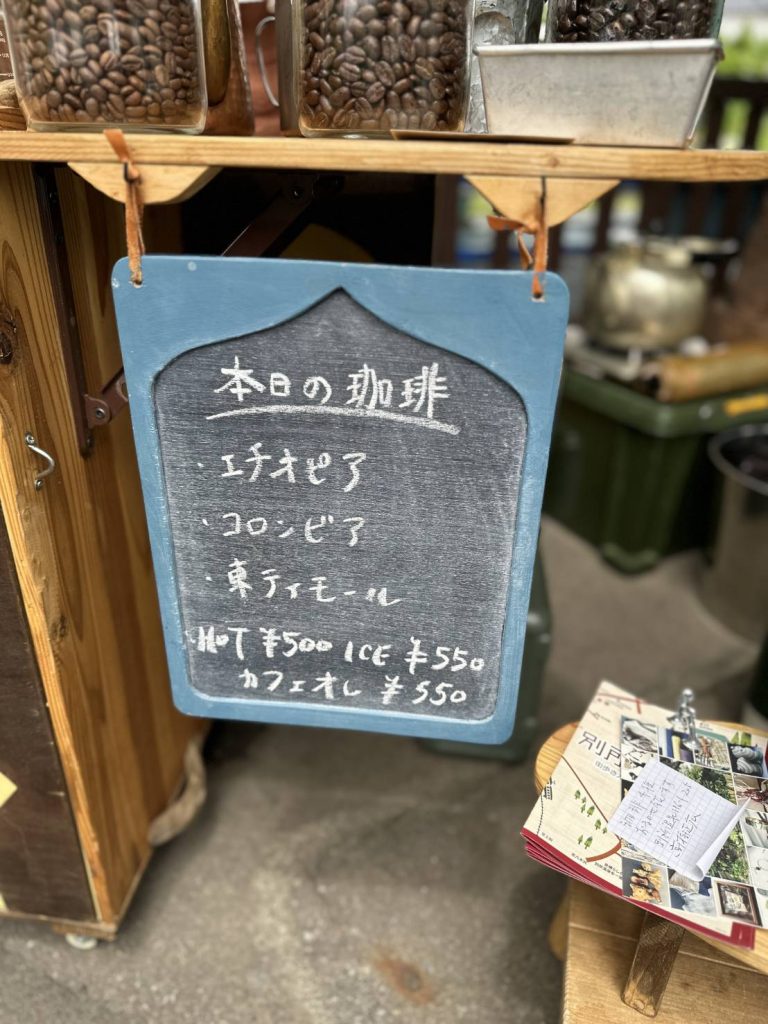 本日の珈琲
・エチオピア
・コロンビア
・東ティモール
HOT ¥500 ICE ¥550
カフェオレ ¥550
別所
街歩き